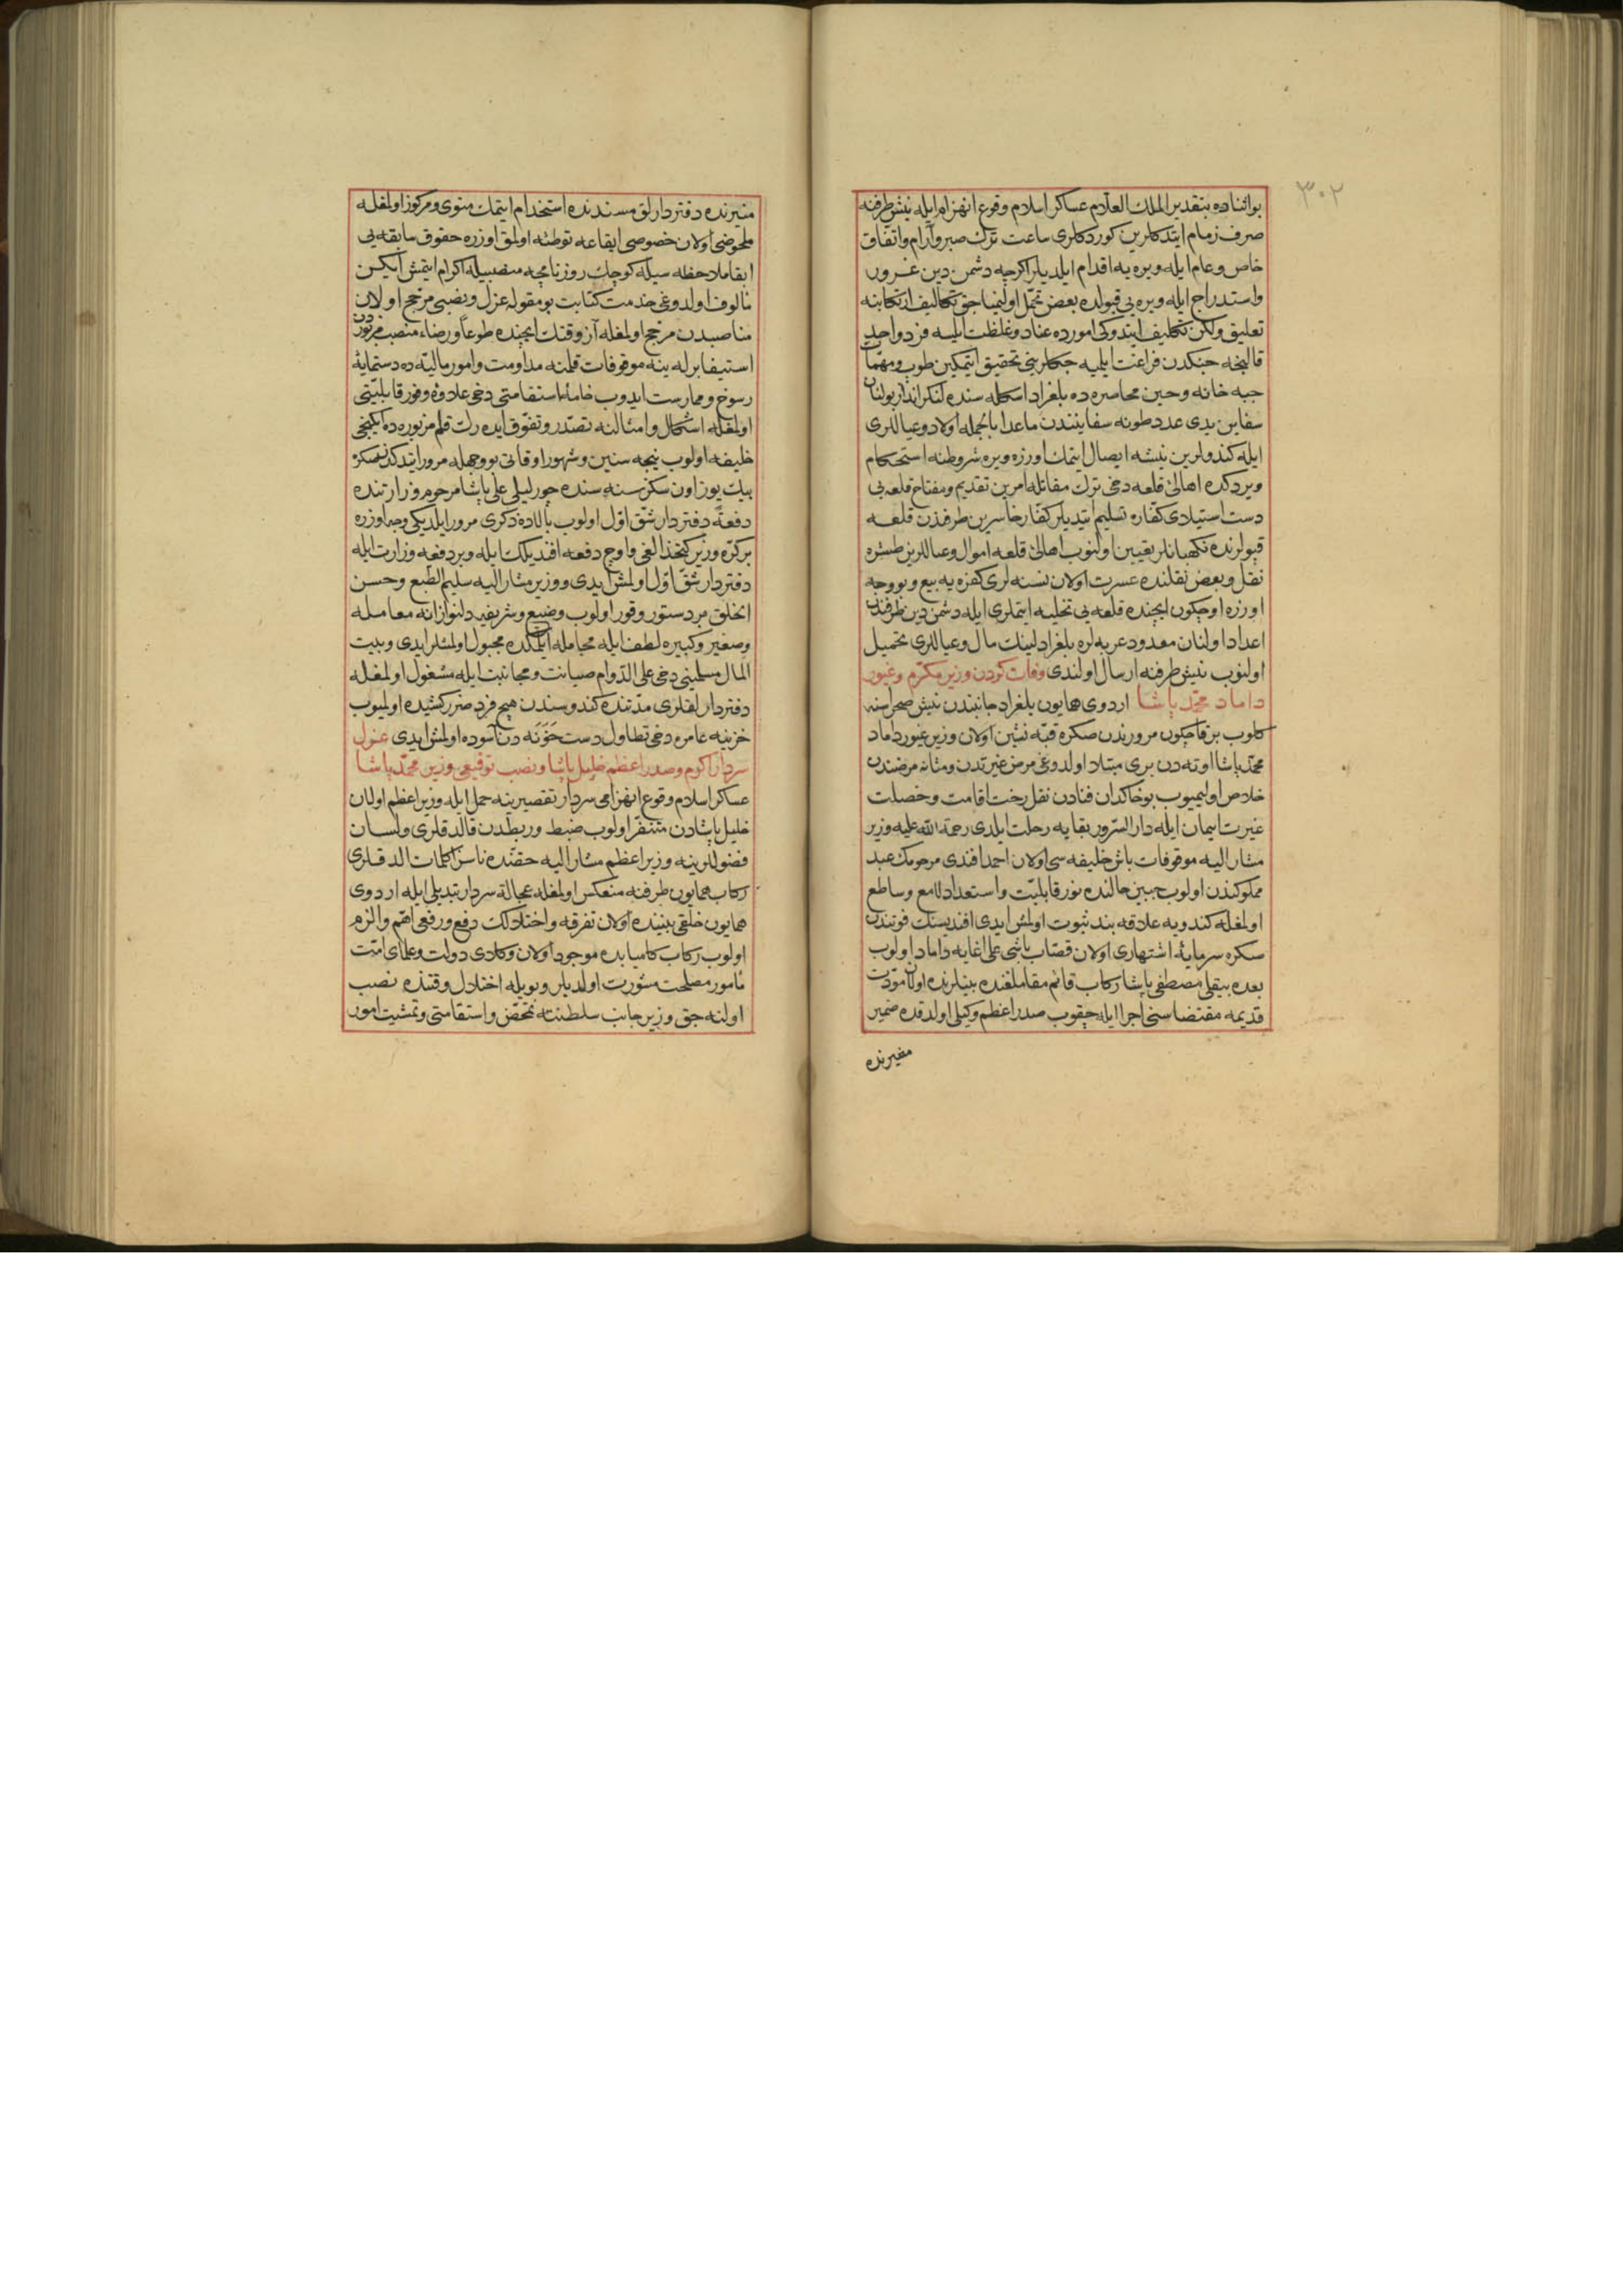 ٣٠٢
بو اثناده بتقدير الملك العلّام عساكر اسلام وقوع انهزام ايله نيش طرفنه
صرف زمام ايتدكلرين كوردكلرى ساعت ترك صبر وآرام واتفاق
خاص وعام ايله ويره يه اقدام ايلديلر اكرچه دشمن دين غرور
واستدراج ايله ويره يى قبولده بعض تحمّل اولنميا جق تكاليف ارتكابنه
تعليق ولكن تكليف ايتدوكى امورده عناد وغلظت ايليه فرد واحد
قالينجه جنكدن فراغت ايلميه جكلرينى تحقيق ايتمكين طوب ومهمّات
جبه خانه وحين محاصره ده بلغراد اسكله سنده لنكر انداز بولنان
سفاين يدى عدد طونه سفاينندن ماعدا بالجمله اولاد وعياللرى
ايله كندولرين نيشه ايصال ايتمك اوزره ويره شروطنه استحكام
ويردكده اهالئ قلعه دخى ترك مقاتله امرين تقديم ومفتاح قلعه يى
دست استيلاى كفاره تسليم ايتديلر كفّار خاسرين طرفندن قلعه
قپولرنده نكهبانلر تعيين اولنوب اهالئ قلعه اموال وعياللرين طشره
نقل وبعض نقلنده عسرت اولان نسنه لرى كفره يه بيع وبو وجه
اوزره اوچ كون ايچنده قلعه يى تخليه ايتملرى ايله دشمن دين طرفندن
اعداد اولنان معدود عربه لره بلغرادلينك مال وعياللرى تحميل
اولنوب نيش طرفنه ارسال اولندى وفات كردن وزير مكرّم وغيور
داماد محمّد پاشا اردوى همايون بلغراد جانبندن نيش صحراسنه
كلوب بر قاچ كون مرورندن صكره قبّه نشين اولان وزير غيور داماد
محمّد پاشا اوته دن برى مبتلا اولدوغى مرض غير تدن ومثانه مرضندن
خلاص اوليميوب بو خاكدان فنادن نقل رخت اقامت وخصلت
غيرت ايمان ايله دار السّرور بقايه رحلت ايلدى رحمة الله عليه وزير
مشار اليه موقوفات باش خليفه سى اولان احمد افندى مرحومك عبد
مملوكندن اولوب جبين حالنده نور قابليّت واستعداد لامع وساطع
اولمغله كندويه علاقه بند ثبوت اولمش ايدى افنديسنك فوتندن
سكره سرمايۀ اشتهارى اولان قصّاب باشى على اغايه داماد اولوب
بعده بيقلى مصطفى پاشا ركاب قائم مقاملغنده بينلرنده اولان مودّت
قديمه مقتضاسنى اجرا ايله چقوب صدر اعظم وكيلى اولدقده ضمير
منيرنده
منيرنده دفتردارلق مسندنده استخدام ايتمك منوى ومركوز اولمغله
ملحوظى اولان خصوصى ايقاعه توطئه اولمق اوزره حقوق سابقه يى
ابقا ملاحظه سيله كوچك روزنامچه منصبيله اكرام ايتمش ايكن
مألوف اولدوغى خدمت كتابت بو مقوله عزل ونصبى مرجح اولان
مناصبدن مرجح اولمغله آز وقتك ايچنده طوعاً ورضاء منصب مزبوردن
استيفا برله ينه موقوفات قلمنه مداومت وامور ماليّه ده دستمايۀ
رسوخ وممارست ايدوب خامۀ استقامتى دخى علاوۀ وفور قابليّتى
اولمغله اشكال وامثالنه تصدّر وتفوّق ايده رك قلم مزبوره ده ايكنجى
خليفه اولوب نيجه سنين وشهور اوقاتى بو وجهله مرور ايتدكدنصكره
بيك يوز اون سكز سنه سنده چورليلى على پاشا مرحوم وزارتنده
دفعةً دفتردار شقّ اوّل اولوب بالاده ذكرى مرور ايلديكى وجه اوزره
بر كرّه وزير كتخدالغى واوچ دفعه افنديلك ايله وبر دفعه وزارت ايله
دفتردار شقّ اوّل اولمش ايدى ووزير مشار اليه سليم الطّبع وحسن
الخلق بر دستور وقور اولوب وضيع وشريفه دلنوازانه معامله
وصغير وكبيره لطف ايله مجامله ايلمكده مجبول اولمشلر ايدى وبيت
المال مسلمينى دخى على الدّوام صيانت ومجانبت ايله مشغول اولمغله
دفتردارلقلرى مدّتنده كندوسندن هيچ فرد ضرر كشيده اولميوب
خزينه عامره دخى تطاول دست خَوَنَه دن آسوده اولمش ايدى عزل
سردار اكرم وصدر اعظم خليل پاشا ونصب توقيعى وزير محمّد پاشا
عساكر اسلام وقوع انهزامى سردار تقصيرينه حمل ايله وزير اعظم اولان
خليل پاشادن متنفّر اولوب ضبط وربطدن قالدقلرى ولسان
فضوللرينه وزير اعظم مشار اليه حقنده ناسزا كلمات الدقلرى
ركاب همايون طرفنه منعكس اولمغله عجالةً سردار تبديلى ايله اردوى
همايون خلقى بيننده اولان تفرقه واختلالك دفع ورفعى اهمّ والزم
اولوب ركاب كاميابده موجود اولان وكلاى دولت وعلماى امّت
مأمور مصلحت مشورت اولديلر وبويله اختلال وقتنده نصب
اولنه جق وزير جانب سلطنته تمحّض واستقامتى وتمشيت امور